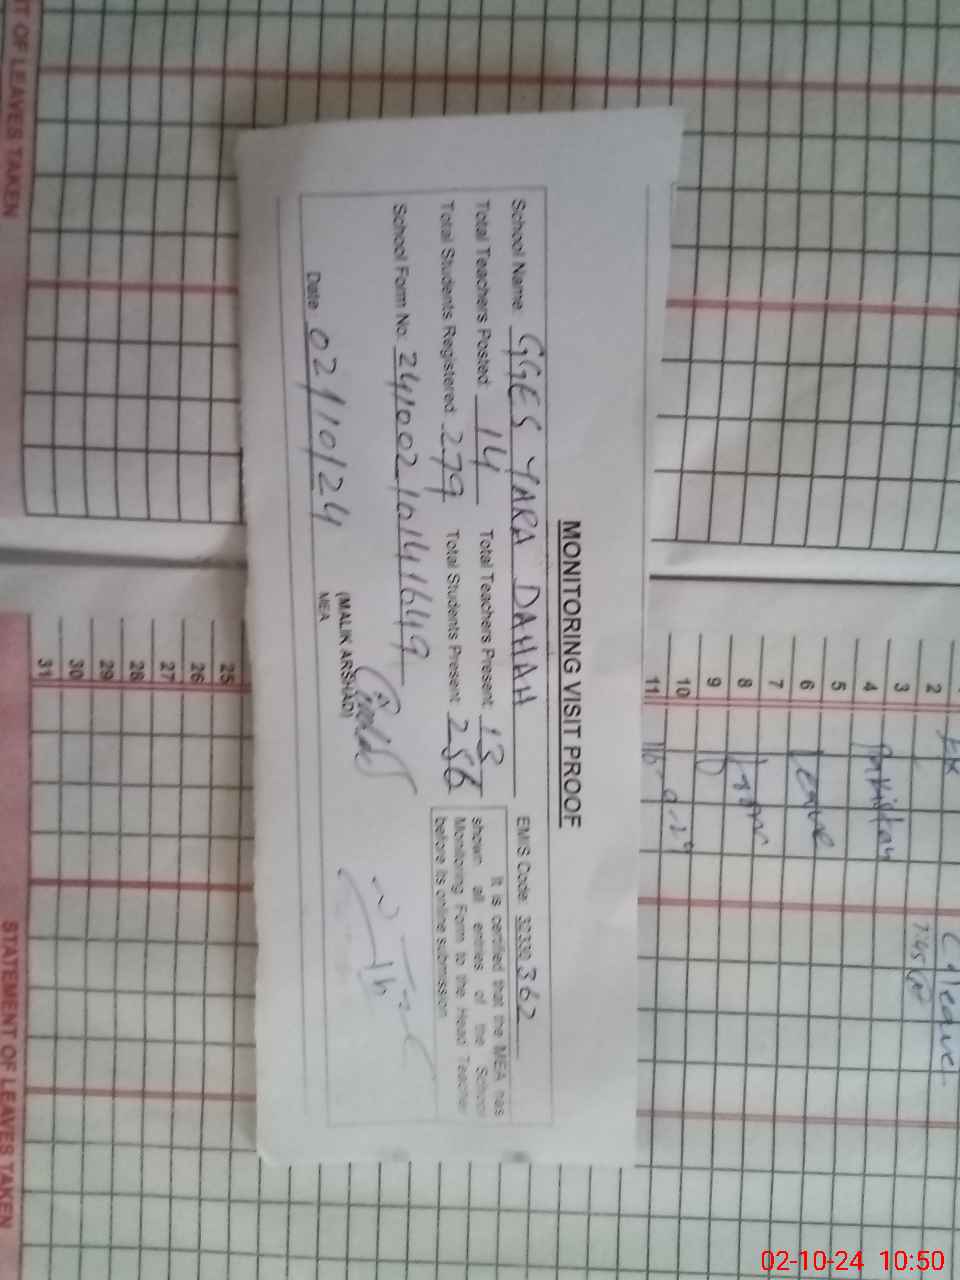 MONITORING VISIT PROOF
School Name: GGES YARA DAHAH EMIS Code: 32330362
Total Teachers Posted: 14 Total Teachers Present: 13
Total Students Registered: 279 Total Students Present: 256
School Form No: 241002101411649
It is certified that the MEA has
shown all entries of the School
Monitoring Form to the Head Teacher
before its online submission
Date: 02/10/24
(MALIK ARSHAD)
MEA
T OF LEAVES TAKEN
STATEMENT OF LEAVES TAKEN
2
3
4
5
6
7
8
9
10
11
25
26
27
28
29
30
31
leave
Leave
02-10-24 10:50